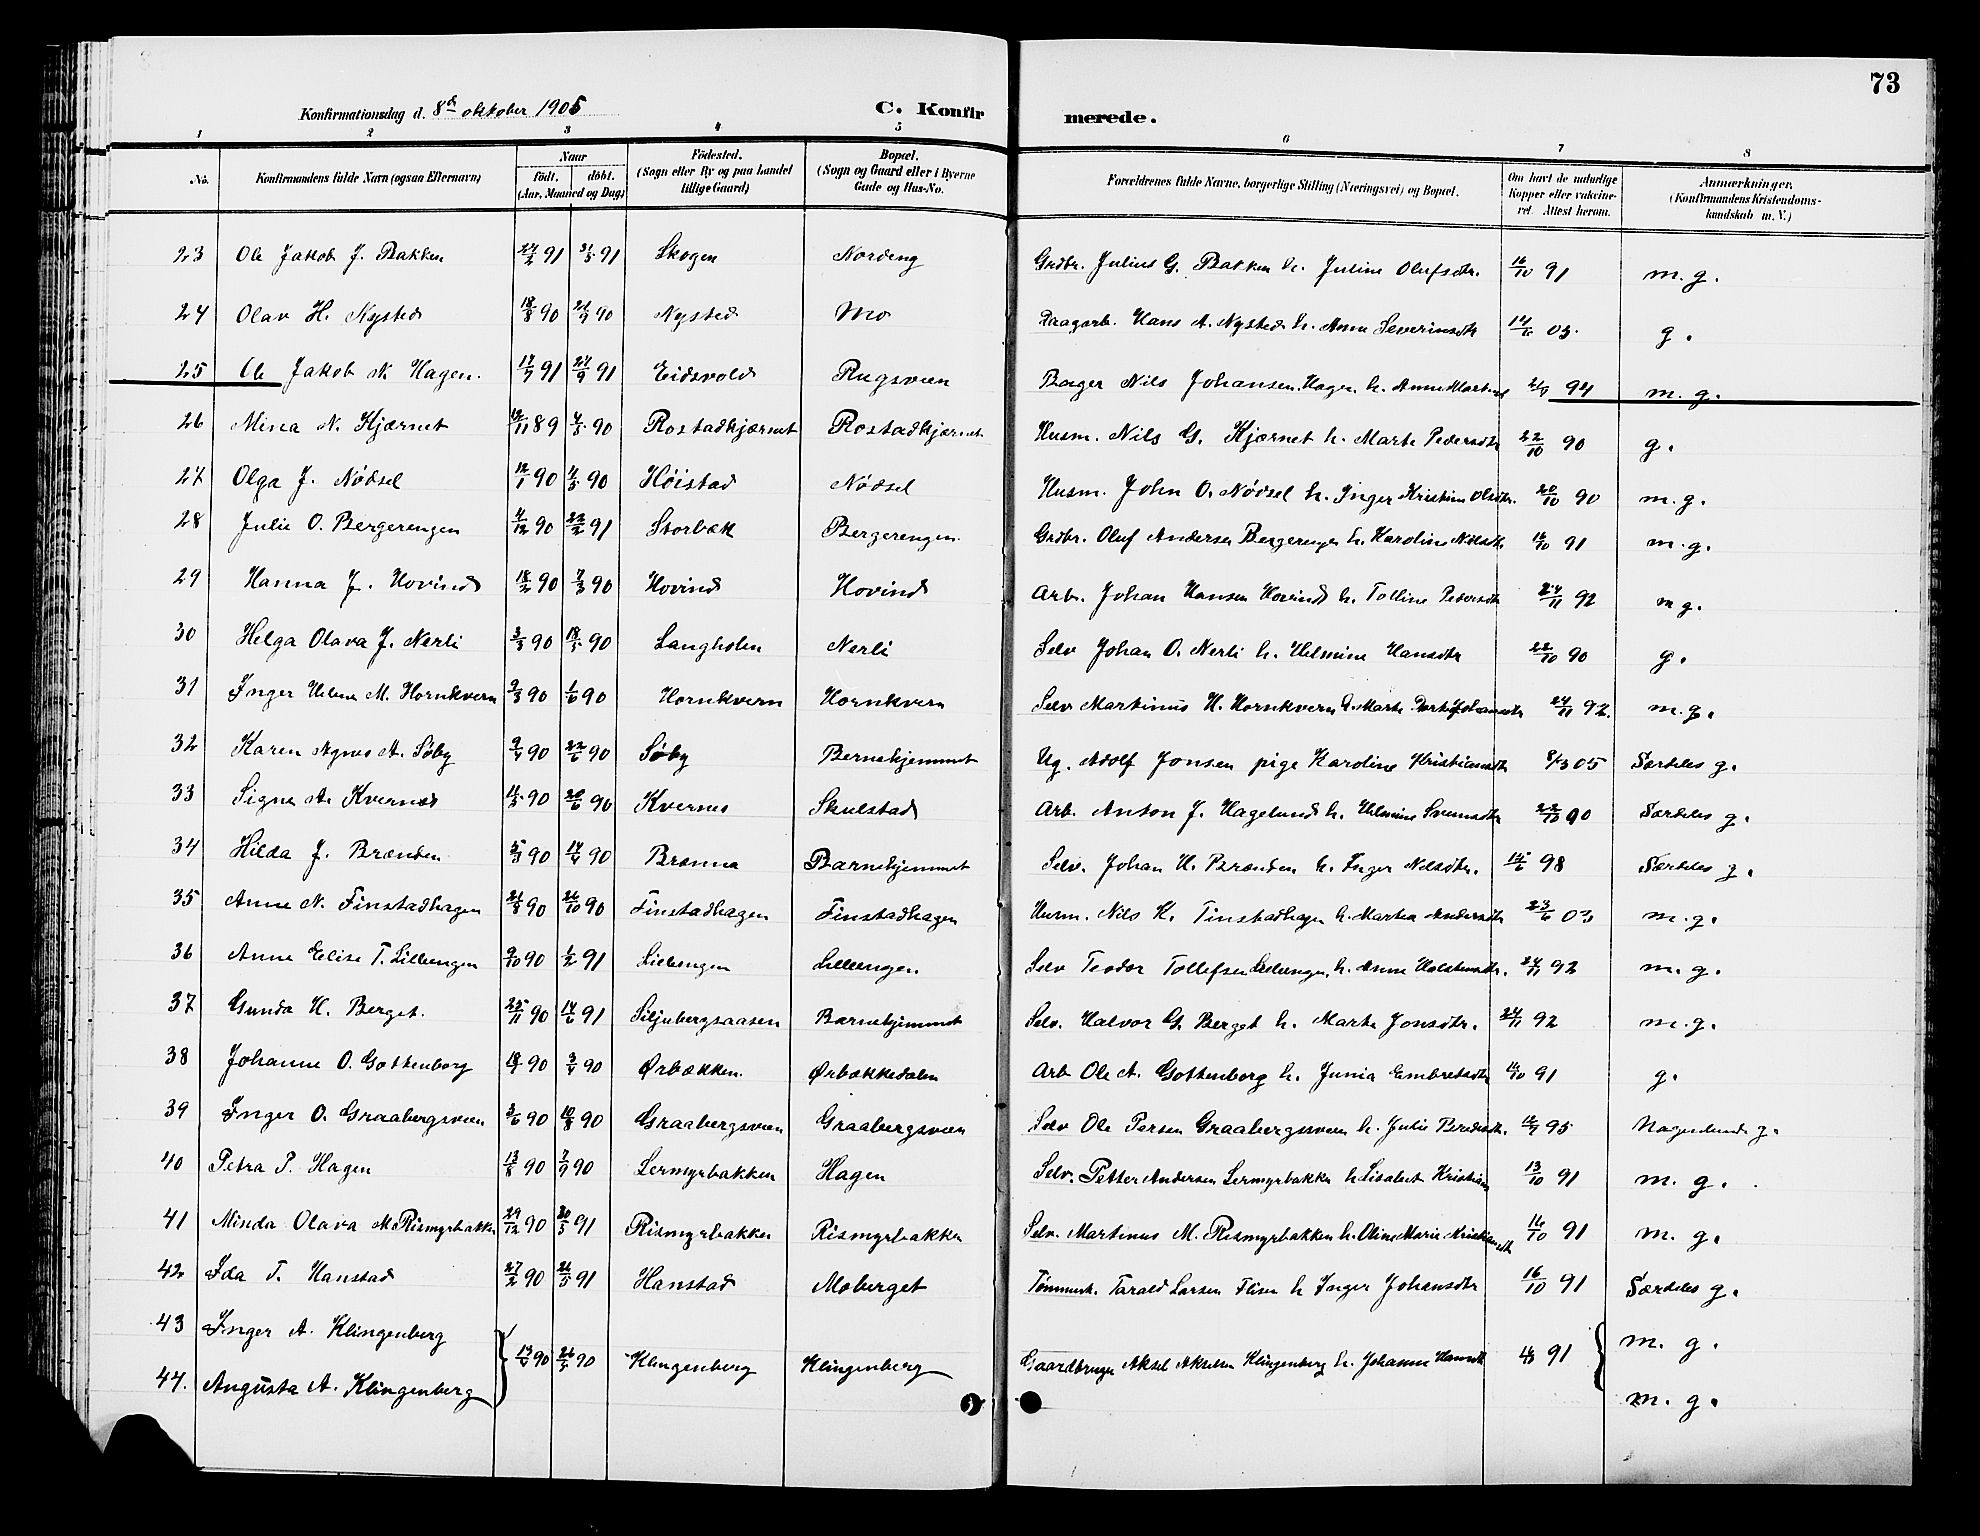 73
Konfirmationsdag d. 8de oktober 1905 C. Konfir merede.
1 2 3 4 5 6 7 8
No. Konfirmandens fulde Navn (ogsaa Efternavn) Naar födt. döbt. (Aar, Maaned og Dag) Födested. (Sogn eller By og paa Landet tillige Gaard) Bopæl. (Sogn og Gaard eller i Byerne Gade og Hus-No. Forældrenes fulde Navne, borgerlige Stilling (Næringsvei) og Bopæl. Om havt de naturlige Kopper eller vakcineret. Attest herom. Anmærkninger. (Konfirmandens Kristendomskundskab m. V.)
23 Ole Jakob J. Bakken 24/2 91 31/5 91 Skogen Nordeng Grdbr. Julius G. Bakken h. Juline Olufsdtr. 16/10 91 m. g.
24 Olav H. Nysted 18/8 90 21/9 90 Nysted Mo Daagarb. Hans A. Nysted h. Anne Severinsdtr 14/6 03. g.
25 Ole Jakob N. Hagen. 17/7 91 27/9 91 Eidsvold Rugsveen Bager Nils Johansen Hagen h. Anne 94 m. g.
26 Mina N. Kjærnet 12/11 89 4/5 90 Rostadkjærnet Rostadkjærnet Husm. Nils G. Kjærnet h. Marte Pedersdtr 22/10 90 g.
27 Olga J. Nödsel 12/1 90 4/5 90 Höistad Nödsel Husm. John O. Nödsel h. Inger Kristine Olsdtr. 20/10 90 m. g.
28 Julie O. Bergerengen 4/12 90 22/2 91 Storbæk Bergerengen. Grdbr. Oluf Andersen Bergerengen h. Karoline Nilsdtr 16/10 91 m. g.
29 Hanna J. Hovind 18/2 90 7/3 90 Hovind Hovind Arb. Johan Hansen Hovind h. Tolline Pedersdtr 24/11 92 m g.
30 Helga Olava J. Nerli 3/3 90 18/5 90 Langholen Nerli Selv Johan O. Nerli h. Helmine Hansdtr 22/10 90 g.
31 Inger Helene M. Hornkvern 9/3 90 1/6 90 Hornkvern Hornkvern Selv Martinus H. Hornkvern h. Marte Johansdtr 24/11 92. m. g.
32 Karen Agnes A. Söby 9/4 90 22/6 90 Söby Bernehjemmet Ug. Adolf Jonsen pige Karoline Kristiansdtr 8/3 05 Særdeles g.
33 Signe A. Kvernes 11/5 90 20/6 90 Kvernes Skulstad Arb. Anton J. Hagelund h. Helmine Svensdtr 22/10 90 Særdeles g.
34 Hilda J. Brænden 5/3 90 14/4 90 Brænna Barnehjemmet Selv. Johan H. Brænden h. Inger Nilsdtr. 15/6 98 Særdeles g.
35 Anne N. Finstadhagen 21/8 90 26/10 90 Finstadhagen Finstadhagen Husm. Nils K. Finstadhagen h. Martea Andersdtr 23/6 03 m. g.
36 Anne Elise T. Lilleengen 9/10 90 1/2 91 Lilleengen Lilleengen. Selv Teodor Tollefsen Lilleengen h. Anne Halstensdtr. 24/11 92 m. g.
37 Gunda H. Berget. 25/11 90 14/6 91 Siljubergsaasen Barnehjemmet Selv. Halvor G. Berget h. Marte Jonsdtr. 24/11 92 m. g.
38 Johanne O. Gottenborg 18/1 90 3/4 90 Ørbækken. Ørbækkedalen Arb Ole A. Gottenborg h. Junia Embretsdtr 16/10 91 g.
39 Inger O. Graabergsveen 3/6 90 10/8 90 Graabergsveen Graabergsveen Selv Ole Persen Graabergsveen h. Julie 12/7 95 Nogenlunde g.
40 Petra P. Hagen 13/8 90 7/9 90 Lermyrbakken Hagen Selv. Petter Andersen Lermyrbakken h Lisabet Kristians 13/10 91 m. g.
41 Minda Olava M. Rismyrbakken 29/12 90 30/3 91 Rismyrbakken Rismyrbakken Selv. Martinus M. Rismyrbakken h. Oline Marie Kristiansdtr 16/10 91 m. g.
42 Ida T. Hanstad 27/2 90 26/5 91 Hanstad Moberget Tömmerh. Tarald Larsen Flisen h Inger Johansdtr 16/10 91 Særdeles g.
43 Inger A. Klingenberg 13/4 90 26/5 90 Klingenberg Klingenberg Gaardbruger Aksel Akselsen Klingenberg h. Johanne Hansdtr 91 m. g.
44. Augusta A. Klingenberg m. g.